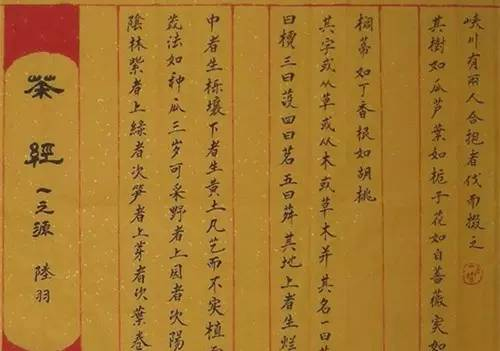 峡川有兩人合抱者伐而掇之
其樹如瓜芦葉如栀子花如白薔薇実如
榈蒂如丁香根如胡桃
其字或从草或从木或草木并其名一曰
曰檟三曰蔎四曰茗五曰荈其地上者生爛
中者生栎壤下者生黄土凡艺而不实植
茂法如种瓜三岁可采野者上园者次陽
陰林紫者上緑者次笋者上芽者次葉卷
茶經
一之源 陸羽